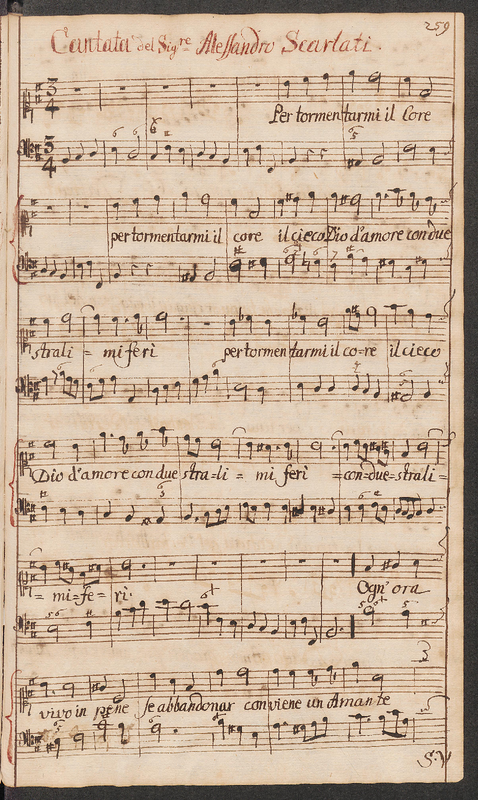 259
Cantata del Sig.re Alessandro Scarlati.
Per tormentarmi il Core
per tormentarmi il core il cieco Dio d'amore con due
strali = mi ferì per tormentarmi il co=re il cieco
Dio d'amore con due stra-li = mi ferì =con=due=strali=
i= mi=fe=ri. Ogn'ora
vivo in pene se abbandonar conviene un Amante